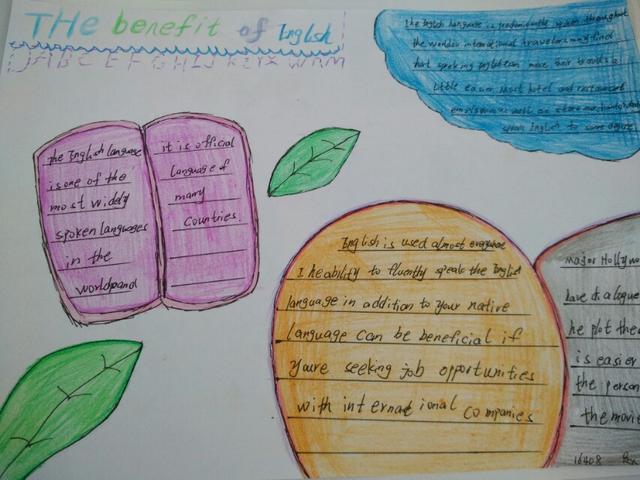 THe benefit of English
the English language
is one of the
most widely
spoken languages
in the
worldpand
it is official
language of
many
countries.
The English language is predominantly spoken throughout
the
international travelers may find
that speaking
make their travels a
little easier. Most hotel and restaurant
as well as
speak English to some degree
English is used almost everywhere
ability to fluently speak the English
language in addition to your native
language can be beneficial if
Youre seeking job opportunities
with international companies
Major Hollywo
have dialogue
he plot the
is easier
the person
the movie
16408